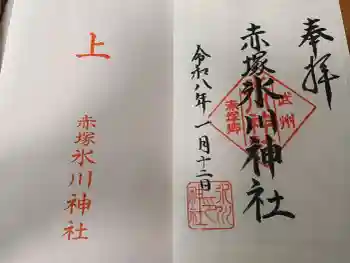 奉拝
赤塚氷川神社
令和八年一月十二日
武州
赤塚郷
上
赤塚氷川神社